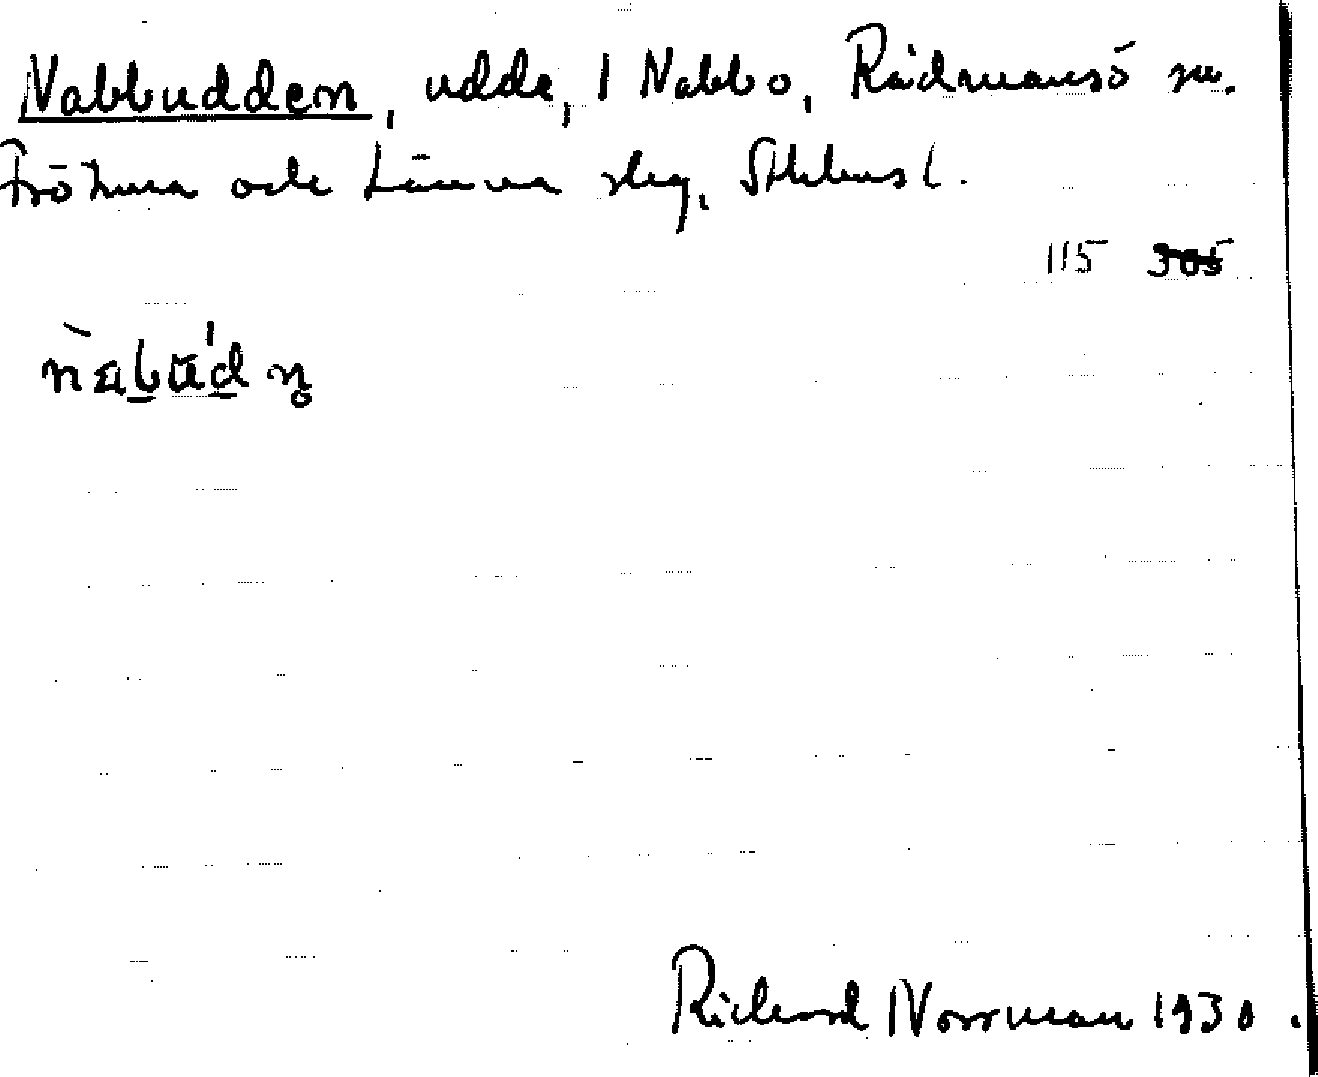 Nabbudden, udde, 1 Nabbo, Rådmansö sn.
Frötuna och Länna skg, Sthlms l.
115 305
Richard Norrman 1930.